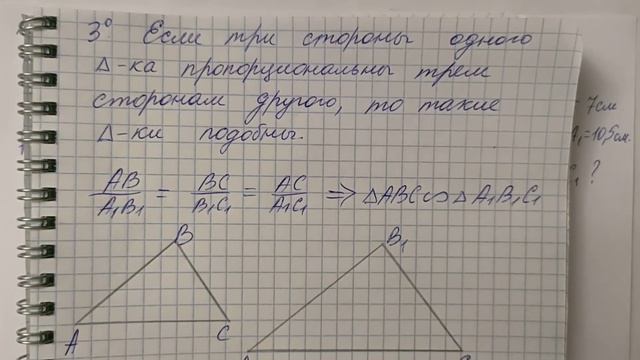 3° Если три стороны одного
Δ-ка пропорциональны трем
сторонам другого, то такие
Δ-ки подобны.
AB/A₁B₁ = BC/B₁C₁ = AC/A₁C₁ ⇒ ΔABC∽ΔA₁B₁C₁
7см
=10,5см.
?
B
B₁
A
C